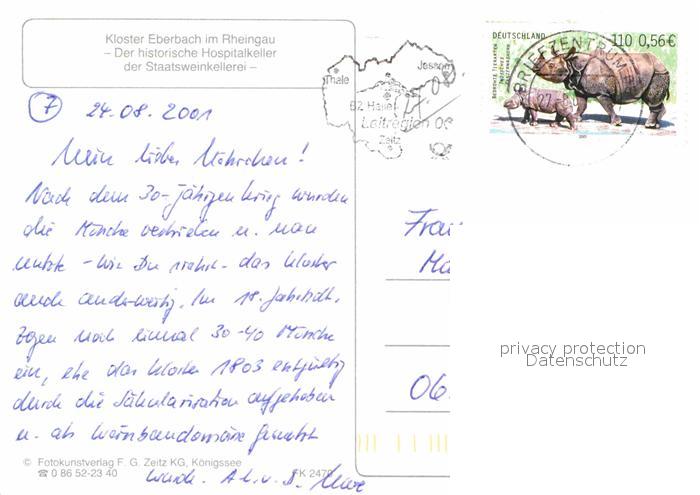 Kloster Eberbach im Rheingau
– Der historische Hospitalkeller
der Staatsweinkellerei –
DEUTSCHLAND 110 0,56€
BRIEFZENTRUM
Thale
Jessen
62 Halle
Leitregion 06
Zeitz
7
24.08.2001
Mein lieber
Nach dem 30-jährigen Krieg wurden
die Mönche vertrieben u. man
nutzte - wie Du siehst - das Kloster
anderweitig. Im 18. Jahrhdt.
zogen noch einmal 30-40 Mönche
ein, ehe das Kloster 1803 endgültig
durch die Säkularisation aufgehoben
u. als Weinbaudomäne genutzt
wurde. A. l. v. D.
Frau
Ma
06
privacy protection
Datenschutz
© Fotokunstverlag F. G. Zeitz KG, Königssee
☎ 0 86 52-23 40
FK 2470